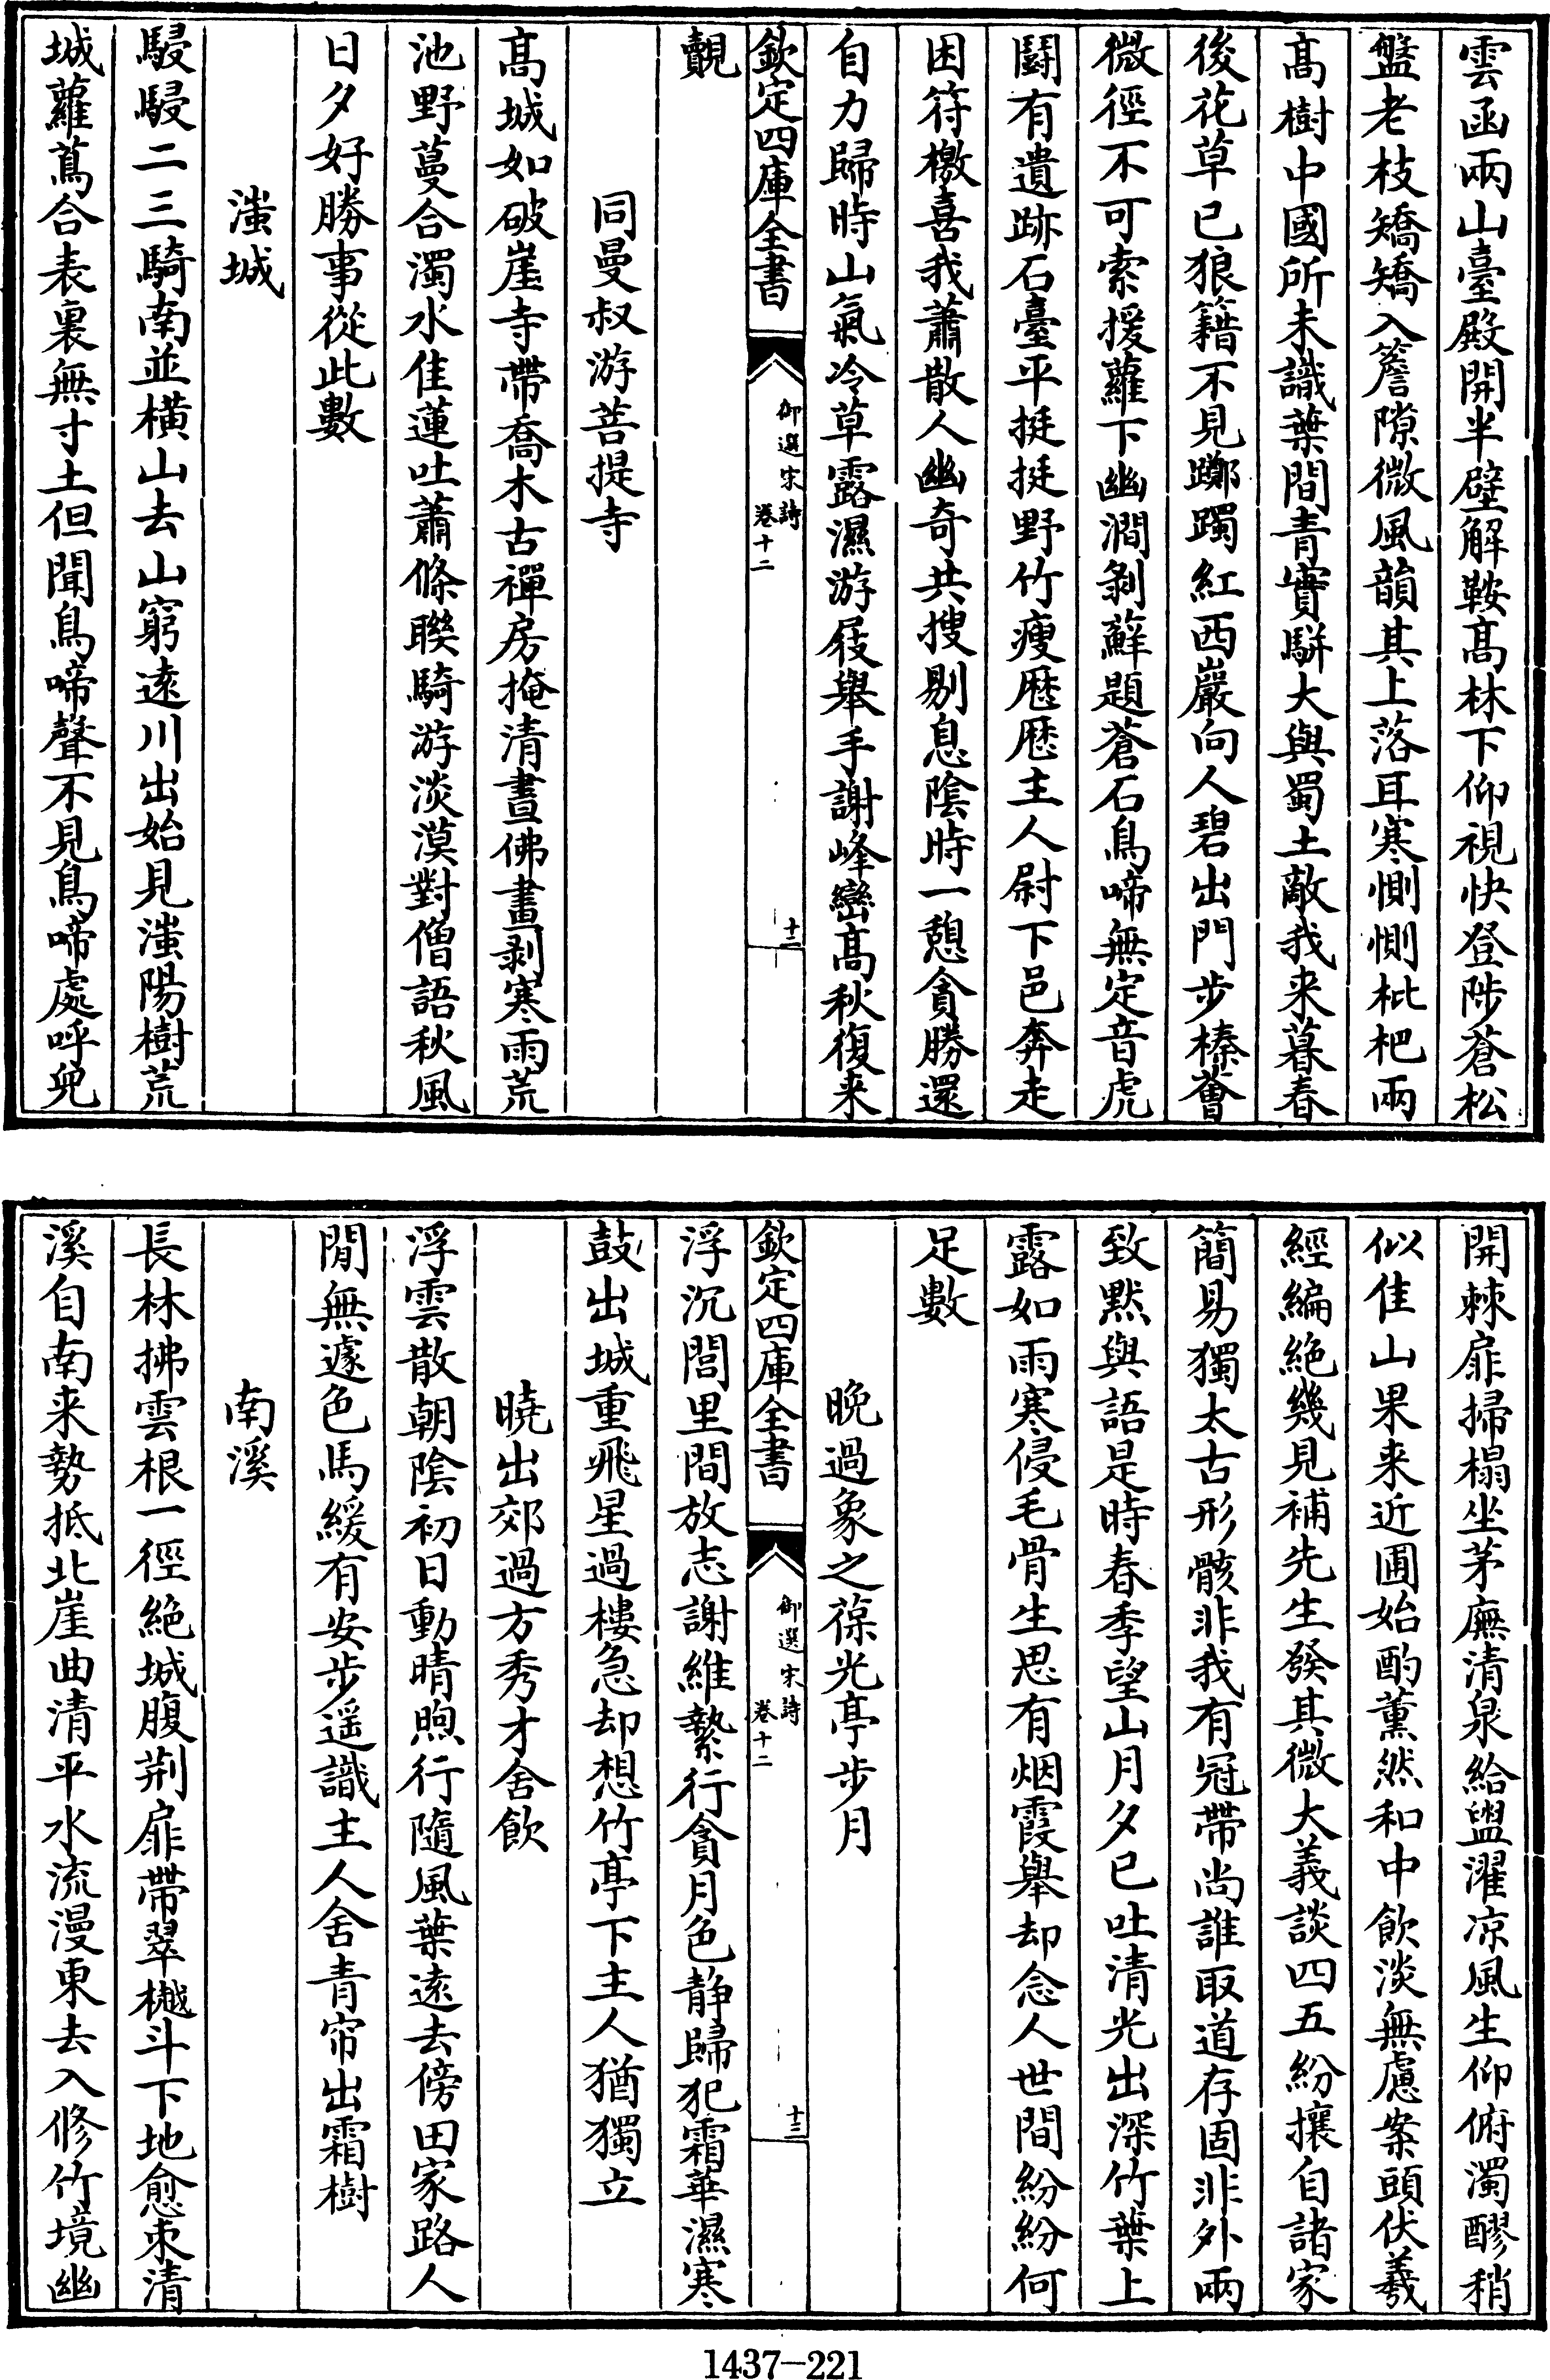 雲函兩山臺殿開半壁解鞍高林下仰視快登陟蒼松
盤老枝矯矯入簷隙微風韻其上落耳寒惻惻枇杷兩
高樹中國所未識葉間青實駢大與蜀土敵我来暮春
後花草已狼籍不見躑躅紅西巖向人碧出門步榛薈
微徑不可索援蘿下幽澗剝蘚題蒼石鳥啼無定音虎
鬬有遺跡石臺平挺挺野竹瘦歴歴主人尉下邑奔走
困符檄喜我蕭散人幽奇共搜剔息陰時一憩貪勝還
自力歸時山氣冷草露濕游屐舉手謝峰巒高秋復来
欽定四庫全書
御選宋詩
卷十二
十二
覿
同曼叔游菩提寺
高城如破崖寺帶喬木古禪房掩清晝佛畫剥寒雨荒
池野蔓合濁水佳蓮吐蕭條聯騎游淡漠對僧語秋風
日夕好勝事從此數
滍城
駸駸二三騎南並横山去山窮逺川出始見滍陽樹荒
城蘿蔦合表裏無寸土但聞鳥啼聲不見鳥啼處呼兒
開棘扉掃榻坐茅廡清泉給盥濯凉風生仰俯濁醪稍
似佳山果来近圃始酌薰然和中飲淡無慮案頭伏羲
經編絶幾見補先生發其微大義談四五紛攘自諸家
簡易獨太古形骸非我有冠帶尚誰取道存固非外兩
致黙與語是時春季望山月夕已吐清光出深竹葉上
露如雨寒侵毛骨生思有烟霞舉却念人世間紛紛何
足數
晚過象之葆光亭步月
欽定四庫全書
御選宋詩
卷十二
十三
浮沉閭里間放志謝維縶行貪月色静歸犯霜華濕寒
鼓出城重飛星過樓急却想竹亭下主人猶獨立
曉出郊過方秀才舍飲
浮雲散朝陰初日動晴煦行隨風葉逺去傍田家路人
閒無遽色馬緩有安步遥識主人舍青帘出霜樹
南溪
長林拂雲根一徑絶城腹荆扉帶翠樾斗下地愈朿清
溪自南来勢抵北崖曲清平水流漫東去入修竹境幽
1437-221